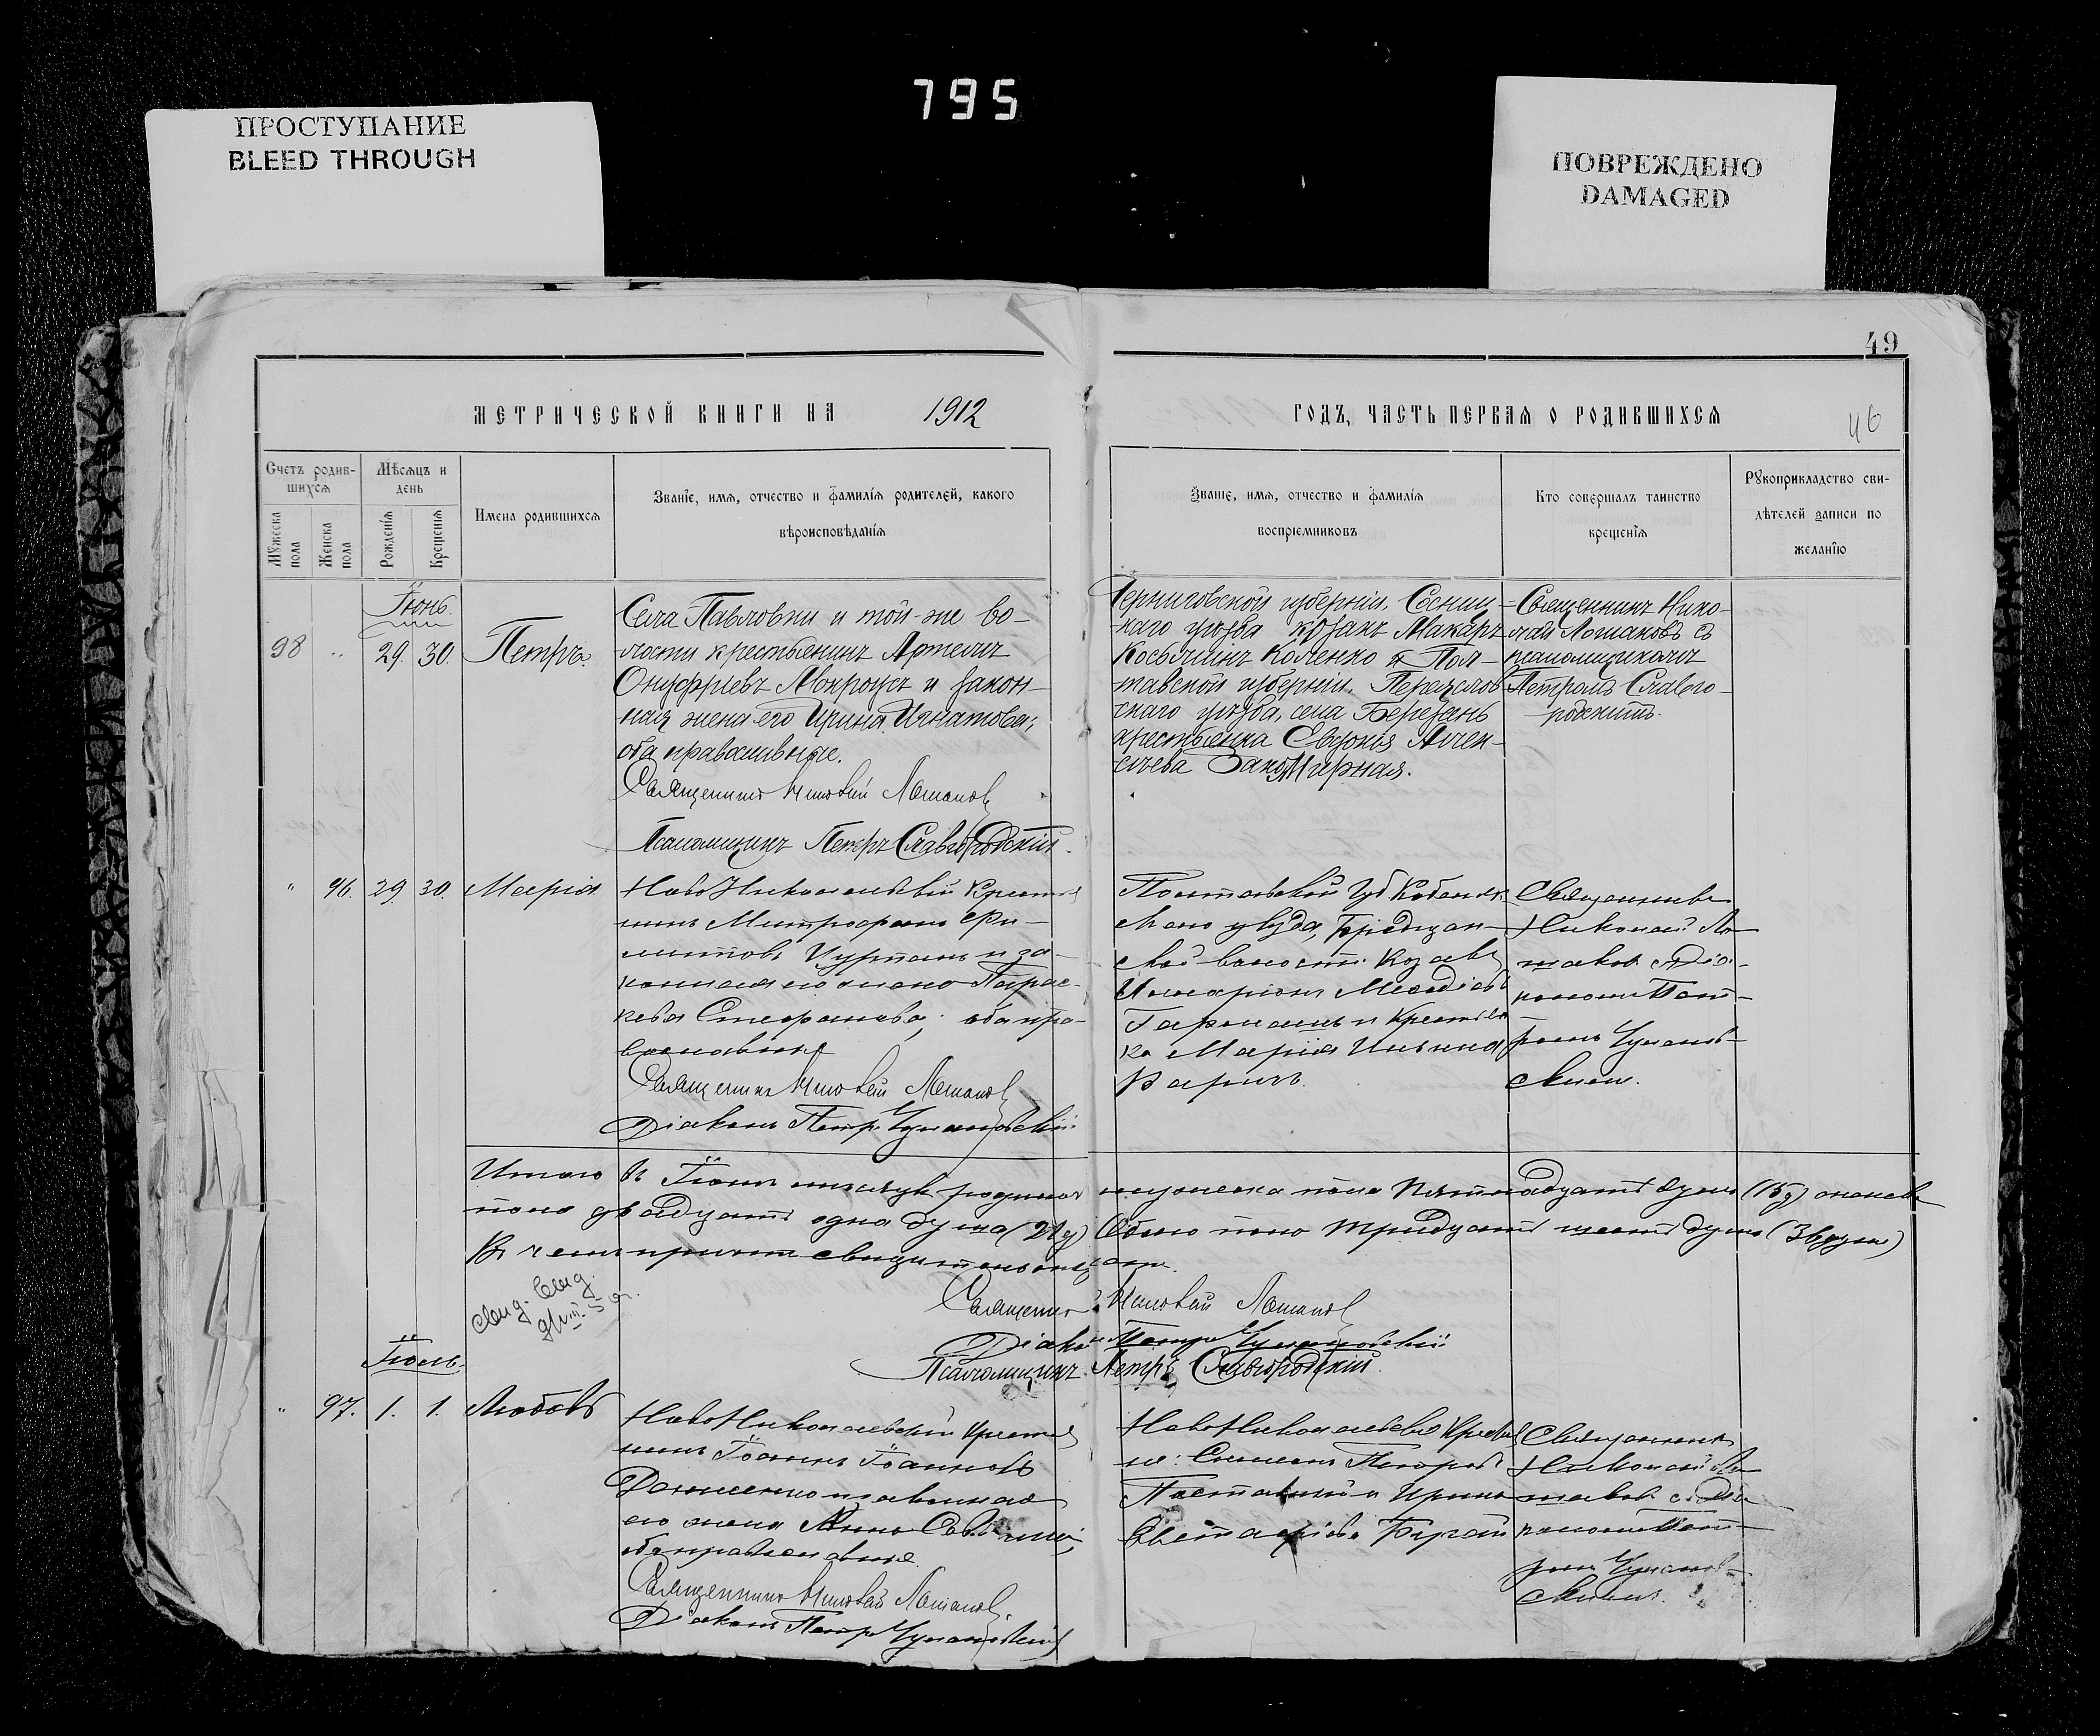 795
ПРОСТУПАНИЕ
BLEED THROUGH
ПОВРЕЖДЕНО
DAMAGED
49
МЕТРИЧЕСКОЙ КНИГИ НА 1912
ГОДЪ, ЧАСТЬ ПЕРВАЯ О РОДИВШИХСЯ
46
Счетъ родив-
шихся
Мѣсяцъ и
день
Мужеска
пола
Женска
пола
Рожденія
Крещенія
Имена родившихся
Званіе, имя, отчество и фамилія родителей, какого
вѣроисповѣданія
Званіе, имя, отчество и фамилія
воспріемниковъ
Кто совершалъ таинство
крещенія
Рукоприкладство сви-
дѣтелей записи по
желанію
Іюнь.
98 " 29. 30. Петръ.
Села Павловки и той-же во-
лости крестьянинъ Артемъ
Онуфріевъ Мокроусъ и закон-
ная жена его Ирина Игнатова;
оба православные.
Священникъ Николай Лошаковъ
Псаломщикъ Петръ Славгородскій.
Черниговской губерніи, Сосниц-
каго уѣзда козакъ Макаръ
Косьминъ Коленко и Пол-
тавской губерніи, Переяслов-
скаго уѣзда, села Березань
крестьянка Евдокія Алек-
сѣева
Священникъ Нико-
лай Лошаковъ съ
псаломщикомъ
Петромъ Славго-
родскимъ.
" 96. 29. 30. Марія
Ново Николаевскій Крестья
нинъ Митрофанъ Фи-
липповъ и за-
конная его жена Парас-
кева Стефанова; оба пра-
вославные
Священникъ Николай Лошаковъ
Діаконъ Петръ
Полтавской Губ Кобеляк-
скаго уѣзда,
ской волости Козакъ
Илларіонъ Меѳодіевъ
и Крестьян
ка Марія Ильина
Священникъ
Николай Ло-
шаковъ съ Діа-
кономъ Пет-
ромъ
скимъ.
Итого въ Іюнѣ мѣсяцѣ родилось мужеска пола пятнадцать душъ (15 д) женска
пола двадцать одна душа (21 д) Обоего пола тридцать шесть душъ (36 душъ)
Въ чемъ причтъ свидѣтельствуетъ.
Священникъ Николай Лошаковъ
Діаконъ Петръ
Псаломщикъ Петръ Славгородскій.
Іюль.
" 97. 1. 1. Любовь
Ново Николаевскій Крестья
нинъ Іоаннъ Іоанновъ
и законная
его жена Анна Саввина;
оба православные.
Священникъ Николай Лошаковъ.
Діаконъ Петръ
Ново Николаевскіе Крестья
не: Симеонъ Петровъ
и Ирина
Евстафіева
Священникъ
Николай Ло-
шаковъ съ Діа
кономъ Пет-
ромъ
скимъ.